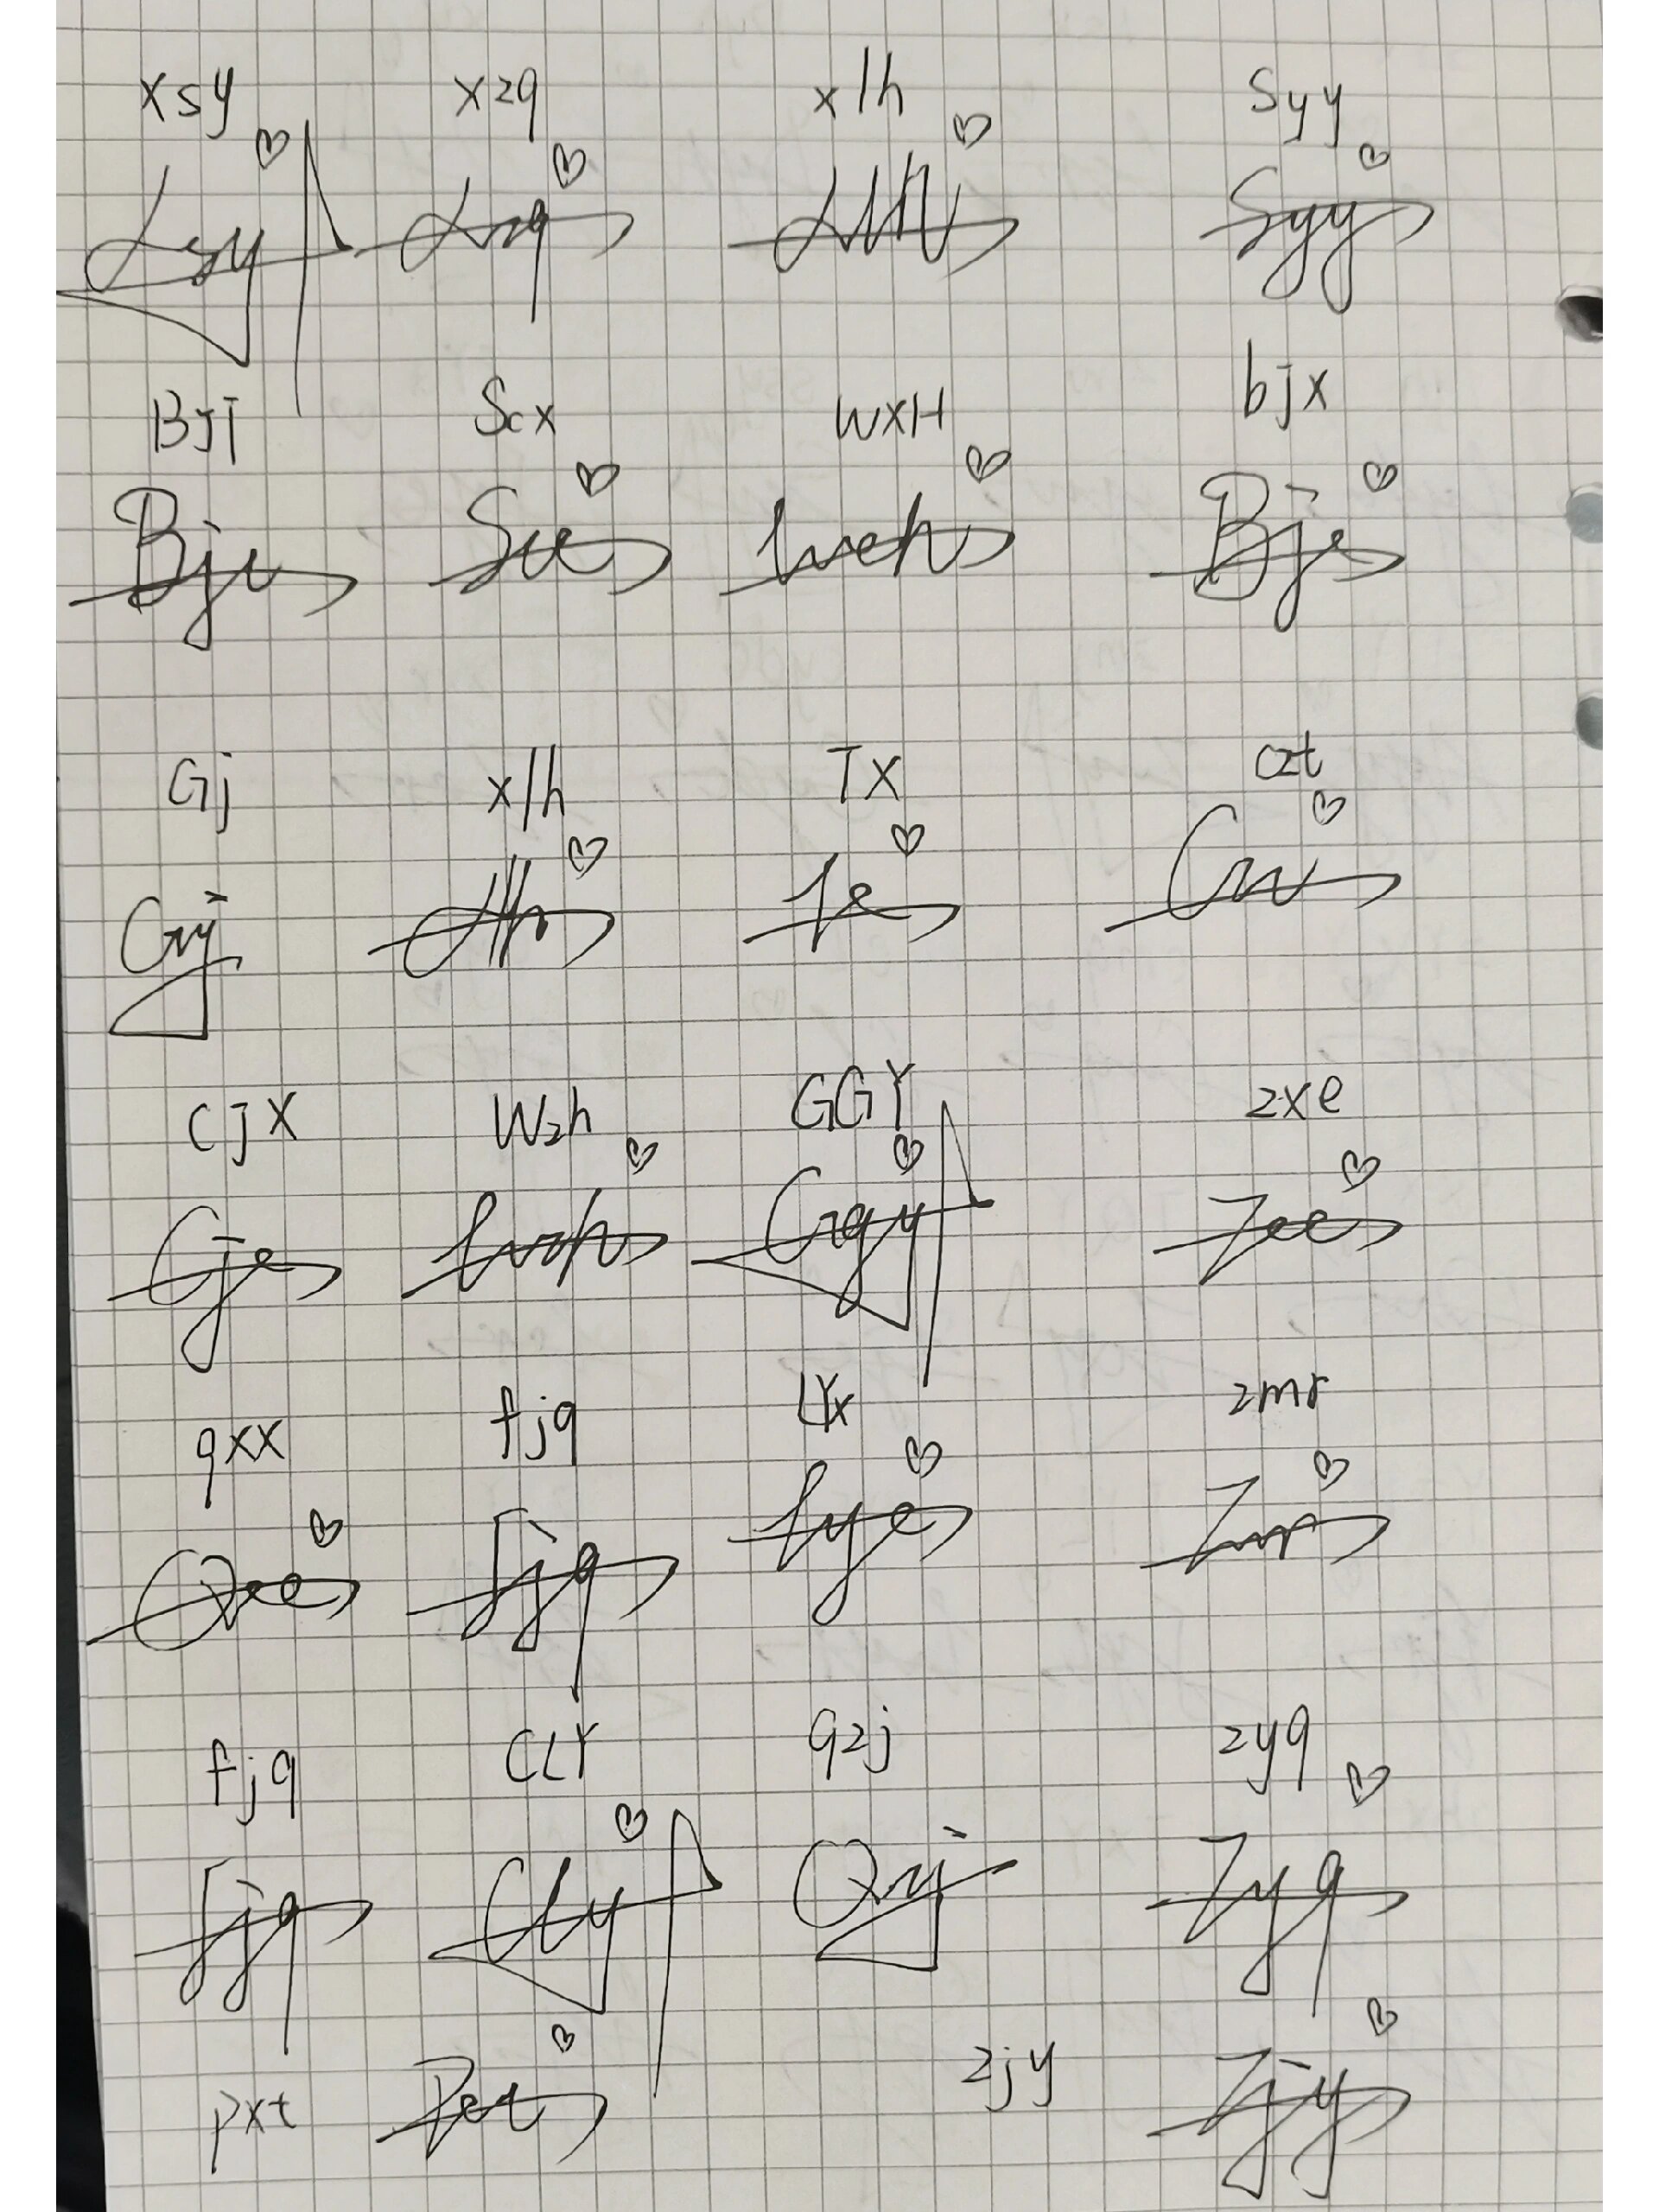 xsy xzq xlh Syy
Lsy Lzq Syy
BJI Scx WXH bjx
Bje Sce Weh Bje
Gj xlh TX czt
Gj
CJX Wzh GGY zxe
Cje Wzh Ggy Zee
qxx fjq LYx zmr
Qee fjq Lye Zmr
fjq CLY qzj zyq
fjq Cly Qzj Zyq
pxt Pet zjy Zjy